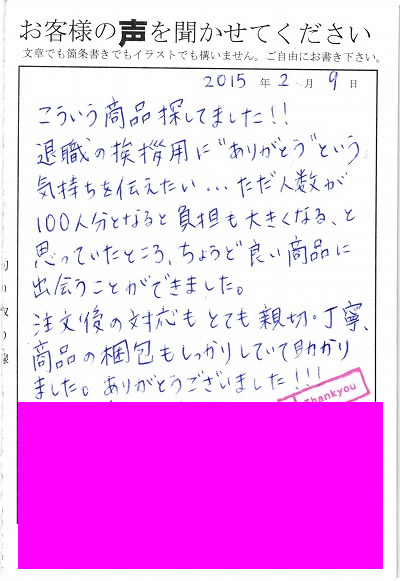 お客様の声を聞かせてください
文章でも箇条書きでもイラストでも構いません。ご自由にお書き下さい。
2015 年 2 月 9 日
こういう商品探してました!!
退職の挨拶用に"ありがとう"という
気持ちを伝えたい...ただ人数が
100人分となると負担も大きくなる、と
思っていたところ、ちょうど良い商品に
出会うことができました。
注文後の対応もとても親切・丁寧、
商品の梱包もしっかりしていて助かり
ました。ありがとうございました!!!
Thankyou